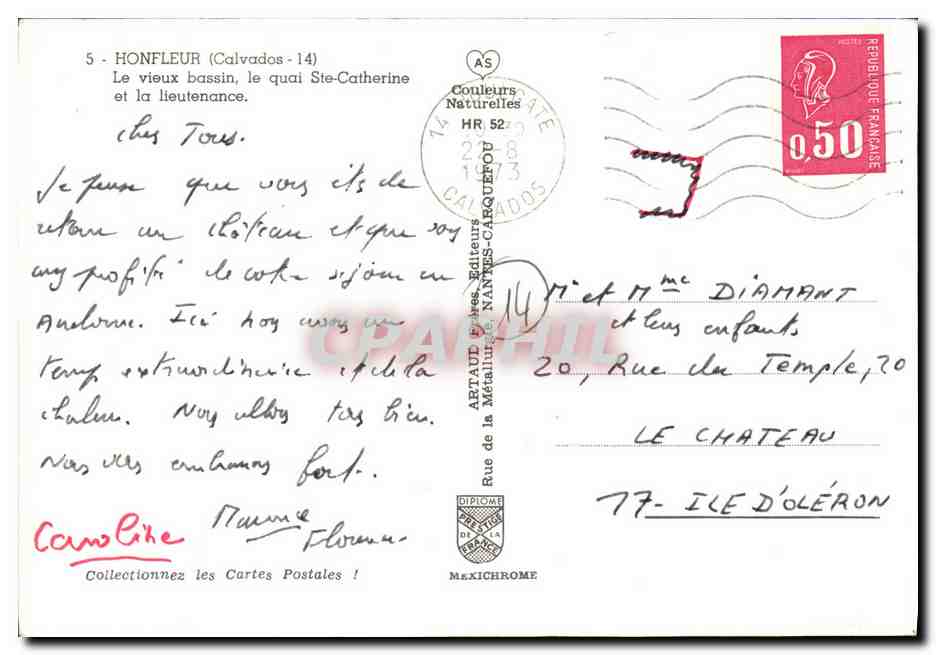 5 - HONFLEUR (Calvados - 14)
Le vieux bassin, le quai Ste-Catherine
et la lieutenance.
chers Tous.
Je pense que vous êtes de
retour au château et que vous
avez profité de votre séjour en
Andorre. Ici nous avons un
temps extraordinaire et de la
chaleur. Nous allons tous bien.
Nous vous embrassons fort.
Maurice
Florence
Caroline
Collectionnez les Cartes Postales !
AS
Couleurs
Naturelles
HR 52
14
22-8
1973
CALVADOS
ARTAUD Frères, Éditeurs
Rue de la Métallurgie, NANTES-CARQUEFOU
CPAPHIL
14
DIPLOME
PRESTIGE
DE LA
FRANCE
MEXICHROME
POSTES
REPUBLIQUE FRANÇAISE
0,50
Mr et Mme DIAMANT
et leurs enfants
20, Rue du Temple, 20
LE CHATEAU
17 - ILE D'OLÉRON